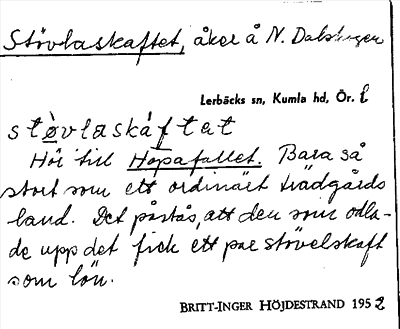 Stövlaskaftet, åker å N. Dalstugan
Lerbäcks sn, Kumla hd, Ör. l
støvlaskáftet
Hör till Hopafallet. Bara så
stort som ett ordinärt trädgårds
land. Det påstås, att den som odla-
de upp det fick ett par stövelskaft
som lön.
BRITT-INGER HÖJDESTRAND 1952